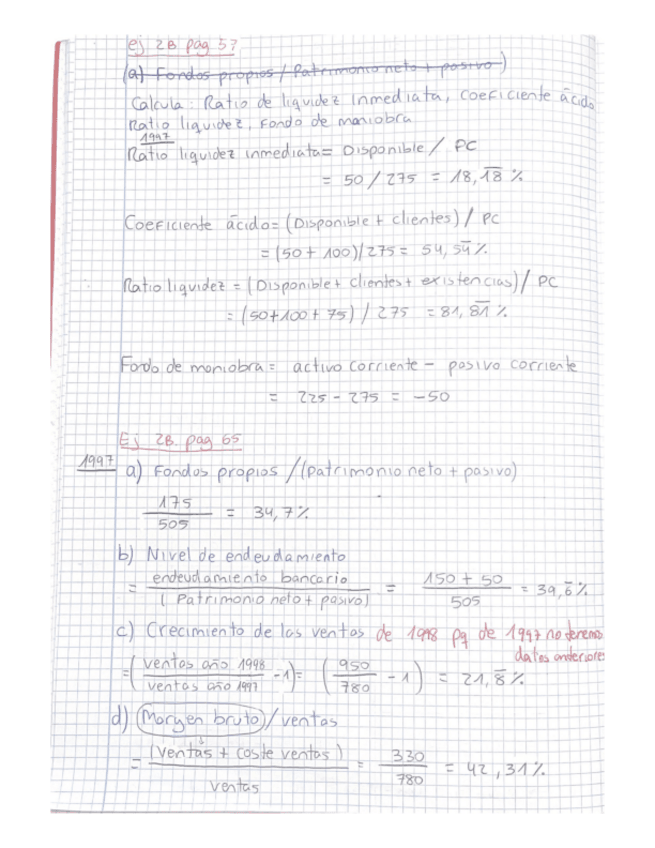 ej 2B pag 57
(a) Fondos propios / Patrimonio neto + pasivo)
Calcula: Ratio de liquidez inmediata, coeficiente ácido
Ratio liquidez, Fondo de maniobra
1997
Ratio liquidez inmediata = Disponible / PC
= 50 / 275 = 18,18 %
Coeficiente ácido = (Disponible + clientes) / PC
= (50 + 100)/275 = 54,54 %
Ratio liquidez = (Disponible + clientes + existencias) / PC
= (50+100+75) / 275 = 81,81 %
Fondo de maniobra = activo corriente - pasivo corriente
= 225 - 275 = -50
Ej 2B pag 65
1997 a) Fondos propios / (patrimonio neto + pasivo)
175 / 505 = 34,7 %
b) Nivel de endeudamiento
= endeudamiento bancario / (Patrimonio neto + pasivo) = 150 + 50 / 505 = 39,6 %
c) Crecimiento de las ventas de 1998 pq de 1997 no tenemos
datos anteriores
= (ventas año 1998 / ventas año 1997 - 1) = (950 / 780 - 1) = 21,8 %
d) (Margen bruto) / ventas
= (ventas + coste ventas) / ventas = 330 / 780 = 42,31 %